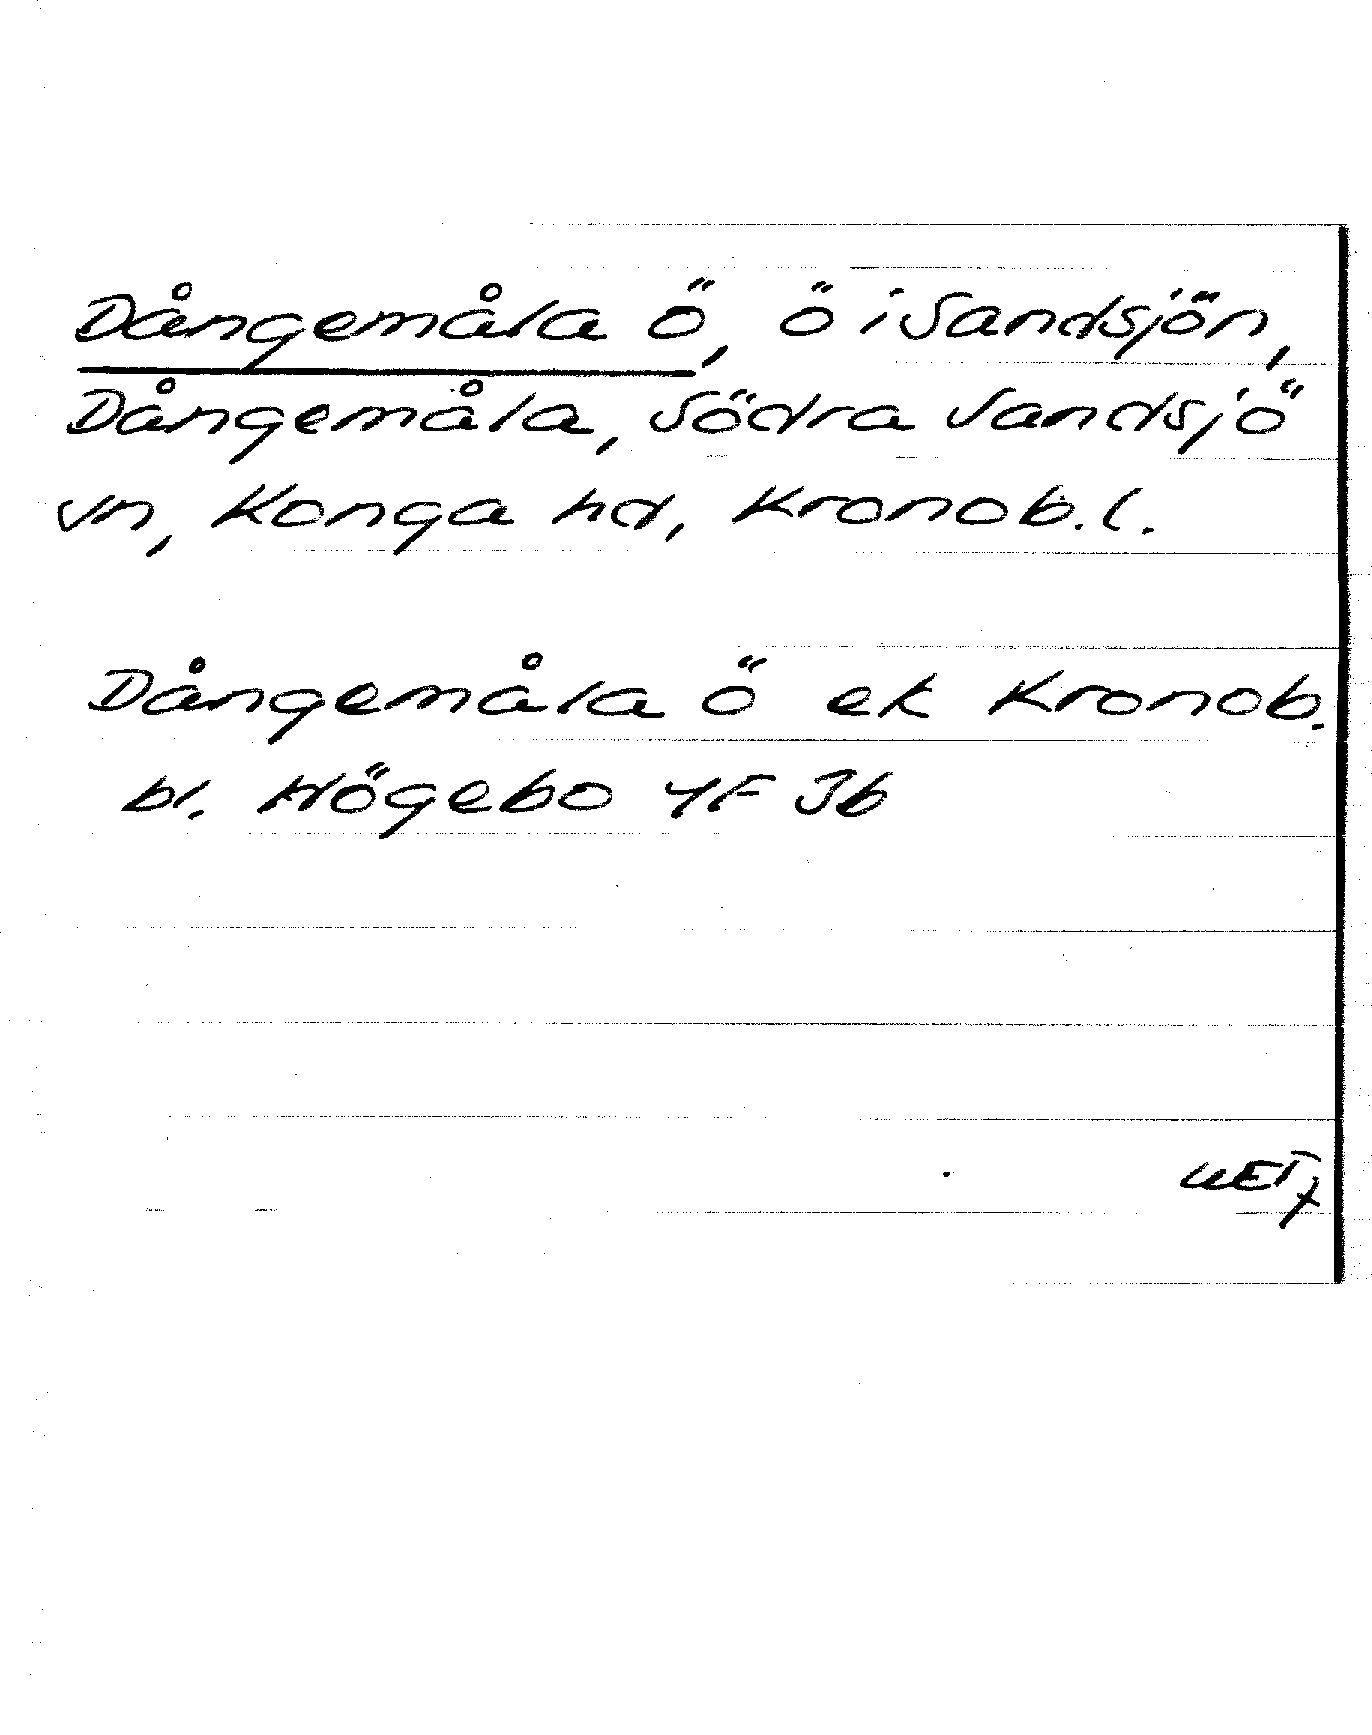 Dångemåla Ö, ö i Sandsjön,
Dångemåla, Södra Sandsjö
sn, Konga hd, Kronob. l.
Dångemåla ö ek Kronob.
bl. Högebo 4F 3b